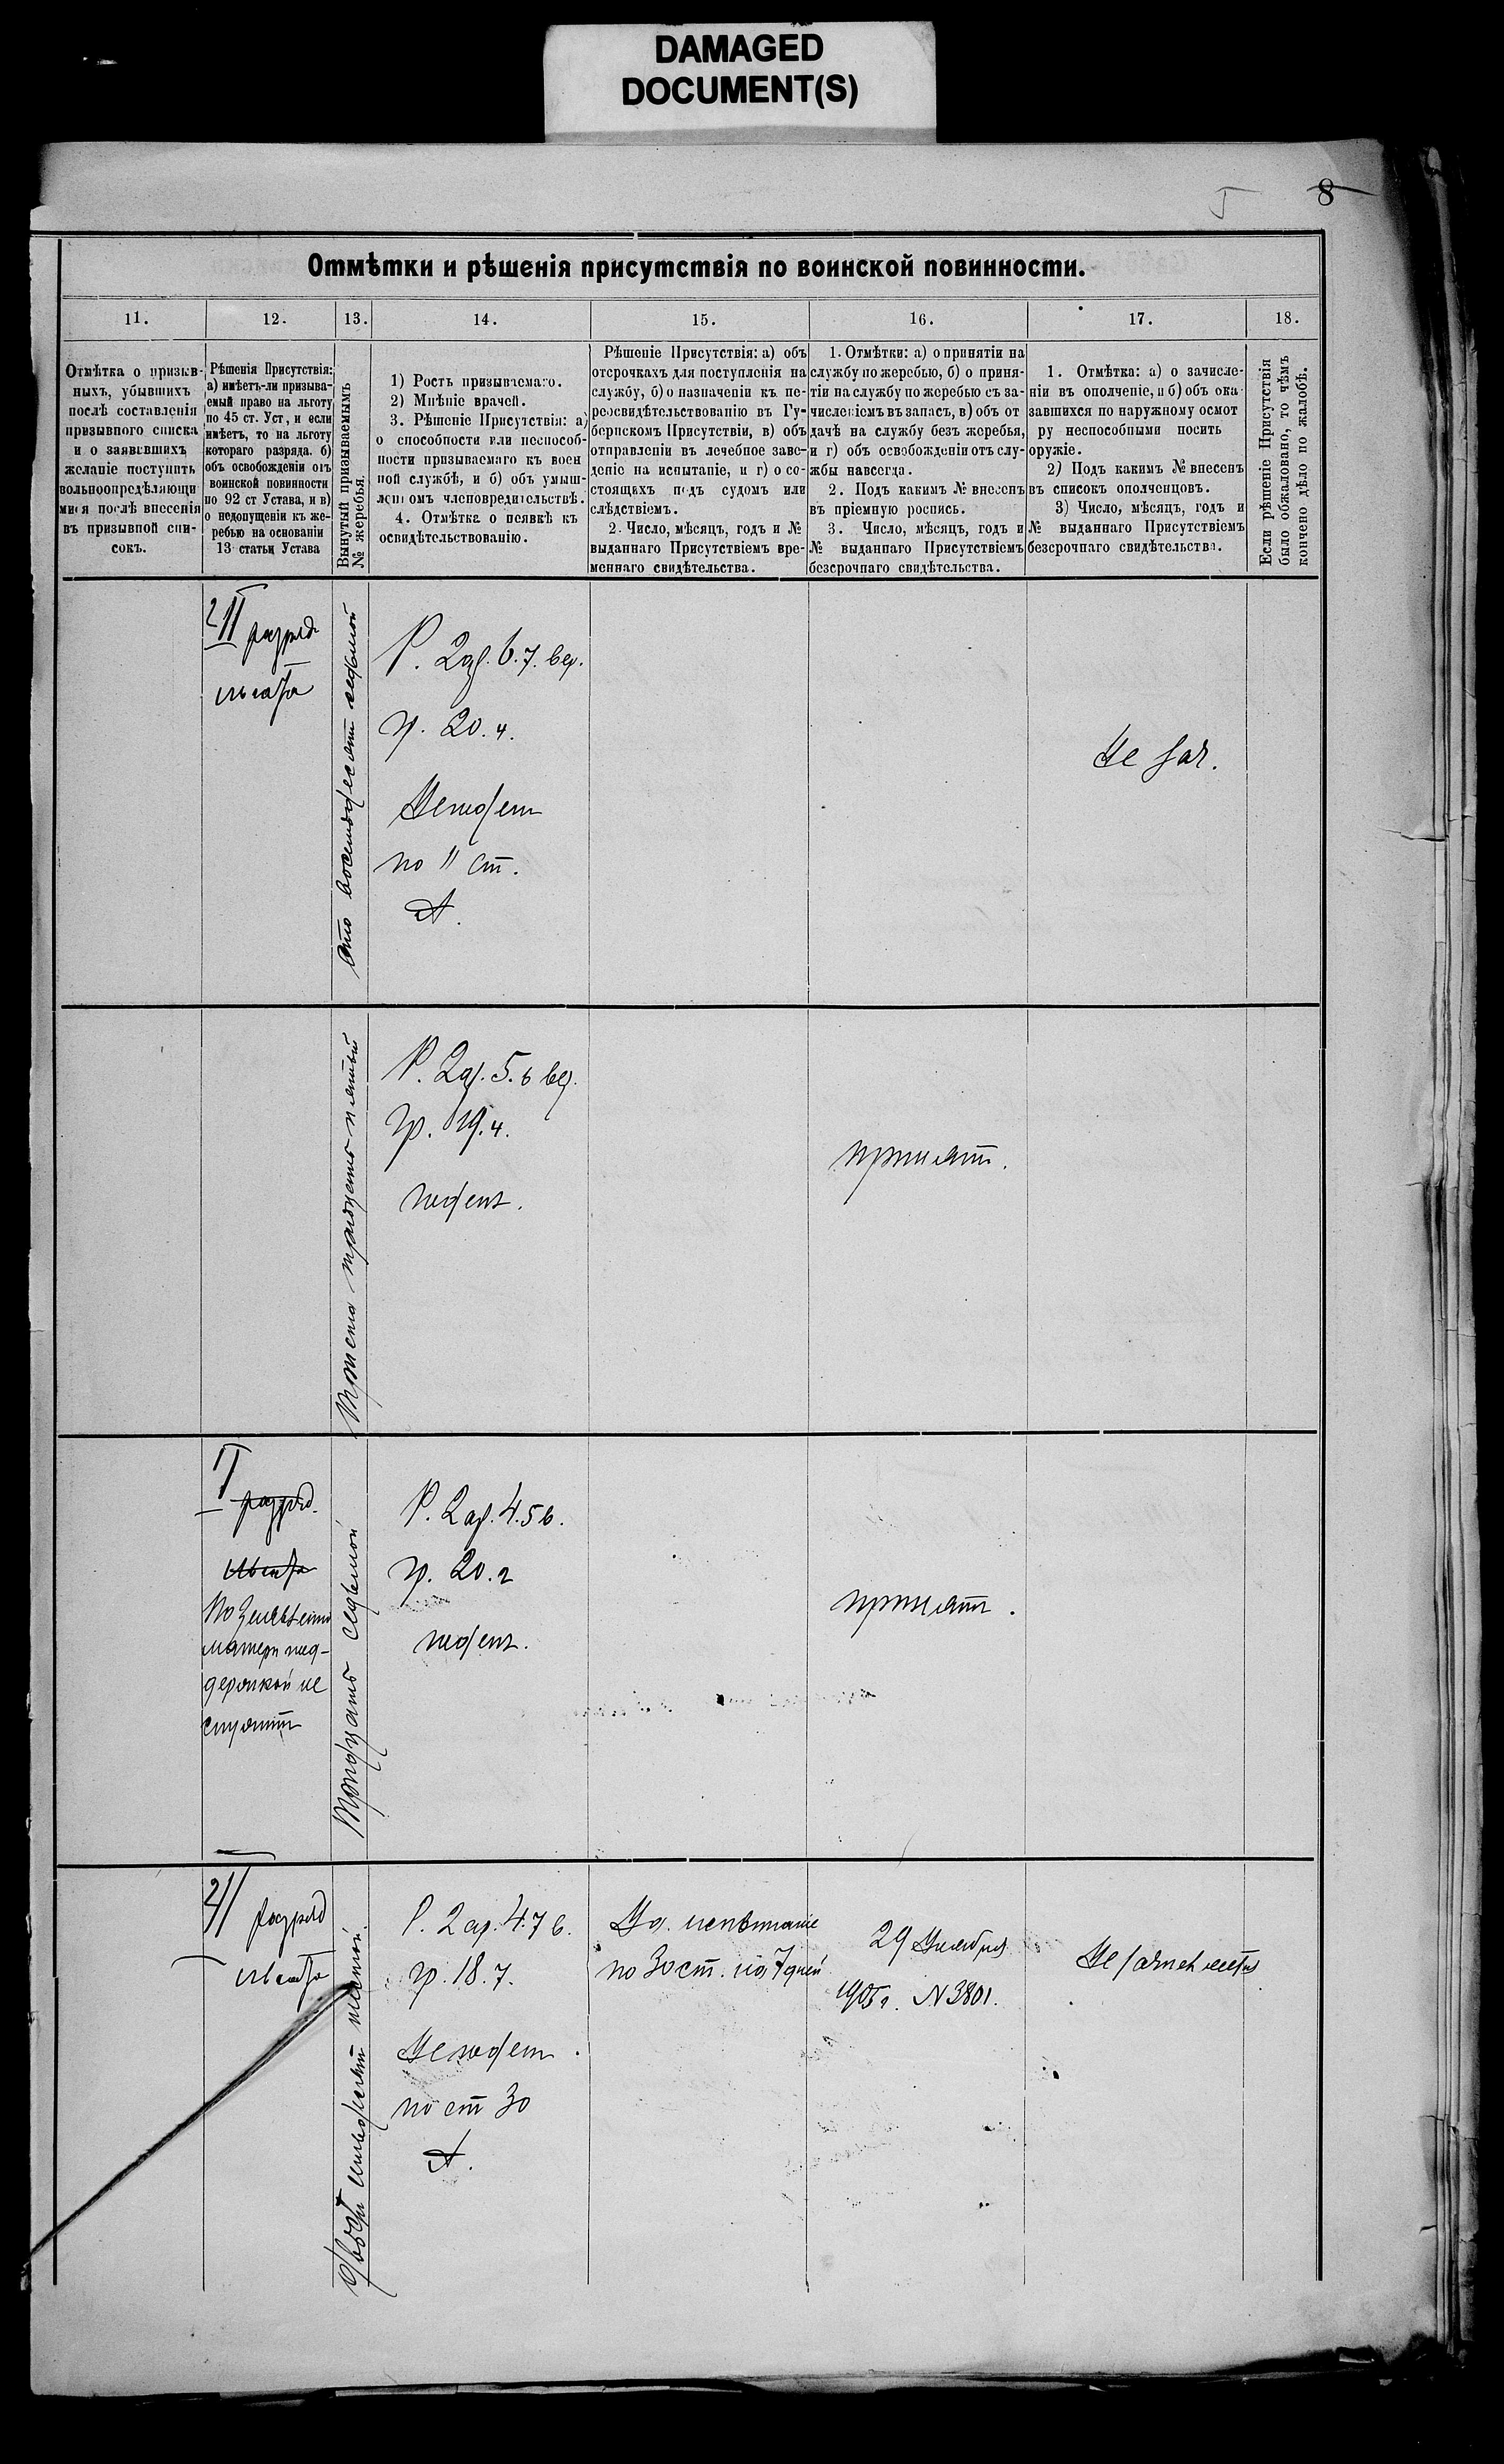 DAMAGED
DOCUMENT(S)
8
Отмѣтки и рѣшенія присутствія по воинской повинности.
11. 12. 13. 14. 15. 16. 17. 18.
Отмѣтка о призыв-
ныхъ, убывшихъ
послѣ составленія
призывного списка
и о заявившихъ
желаніе поступить
вольноопредѣляющи
мися послѣ внесенія
въ призывной спи-
сокъ.
Рѣшенія Присутствія:
а) имѣетъ-ли призыва-
емый право на льготу
по 45 ст. Уст, и если
имѣетъ, то на льготу
котораго разряда. б)
объ освобожденіи отъ
воинской повинности
по 92 ст Устава, и в)
о недопущеніи къ же-
ребью на основаніи
13 статьи Устава
Вынутый призываемымъ
№ жеребья.
1) Ростъ призываемаго.
2) Мнѣніе врачей.
3. Рѣшеніе Присутствія: а)
о способности или неспособ-
ности призываемаго къ воен
ной службѣ, и б) объ умыш-
ленномъ членовредительствѣ.
4. Отмѣтка о неявкѣ къ
освидѣтельствованію.
Рѣшеніе Присутствія: а) объ
отсрочкахъ для поступленія на
службу, б) о назначеніи къ пе-
реосвидѣтельствованію въ Гу-
бернскомъ Присутствіи, в) объ
отправленіи въ лечебное заве-
деніе на испытаніе, и г) о со-
стоящихъ подъ судомъ или
слѣдствіемъ.
2. Число, мѣсяцъ, годъ и №
выданнаго Присутствіемъ вре-
меннаго свидѣтельства.
1. Отмѣтки: а) о принятіи на
службу по жеребью, б) о приня-
тіи на службу по жеребью съ за-
численіемъ въ запасъ, в) объ от
дачѣ на службу безъ жеребья,
и г) объ освобожденіи отъ слу-
жбы навсегда.
2. Подъ какимъ № внесенъ
въ пріемную роспись.
3. Число, мѣсяцъ, годъ и
№ выданнаго Присутствіемъ
безсрочнаго свидѣтельства.
1. Отмѣтка: а) о зачисле-
ніи въ ополченіе, и б) объ ока
завшихся по наружному осмот
ру неспособными носить
оружіе.
2) Подъ какимъ № внесенъ
въ списокъ ополченцовъ.
3) Число, мѣсяцъ, годъ и
№ выданнаго Присутствіемъ
безсрочнаго свидѣтельства.
Если рѣшеніе Присутствія
было обжаловано, то чѣмъ
кончено дѣло по жалобѣ.
II разряд
льгота
Сто восемьдесят седьмой
Р. 2 ар. 6.7. вер.
гр. 20.4.
Негоден
по 11 ст.
А.
Не зач.
Триста тридцать пятый
Р. 2 ар. 5.6 вер.
гр. 19.4.
годен.
принят.
I разряд.
льгота
По заявлению
матери под-
держкой не
служит
Тридцать седьмой
Р. 2 ар. 4.5 в.
гр. 20.2
годен.
принят.
II разряд
льгота
Двести шестой
Р. 2 ар. 4.7 в.
гр. 18.7.
Негоден
по ст 30
А.
На испытание
по 30 ст. на 7 дней
29 Ноября
N 3801.
Не